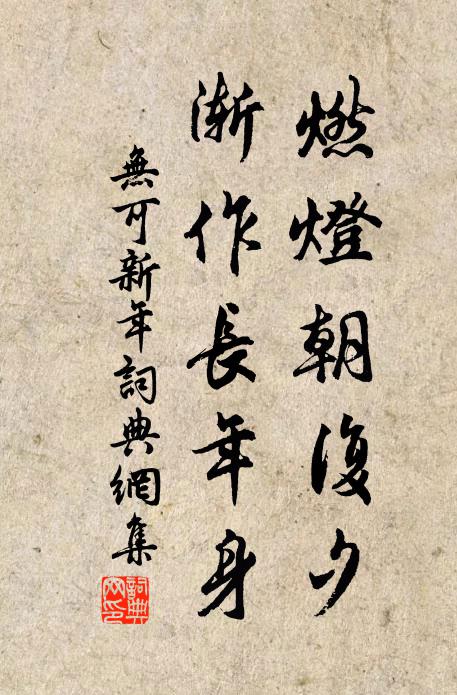 燃燈朝復夕
漸作長年身
無可新年詞典網集
詞典網印